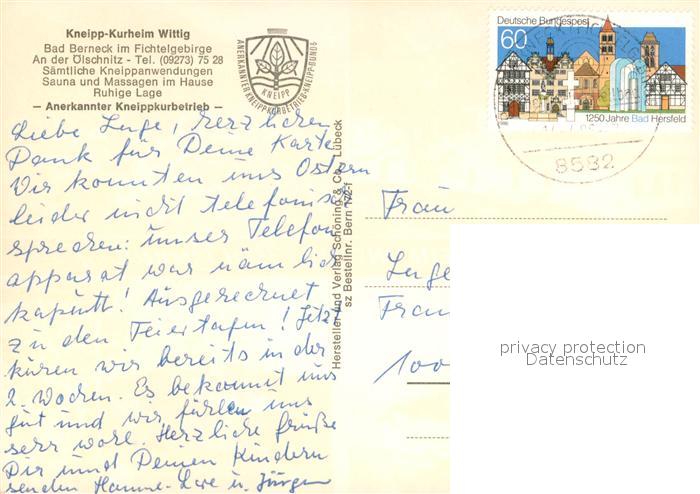 Kneipp-Kurheim Wittig
Bad Berneck im Fichtelgebirge
An der Ölschnitz - Tel. (09273) 75 28
Sämtliche Kneippanwendungen
Sauna und Massagen im Hause
Ruhige Lage
— Anerkannter Kneippkurbetrieb —
ANERKANNTER KNEIPPKURBETRIEB-KNEIPP-BUND
KNEIPP
Deutsche Bundespost
60
1250 Jahre Bad Hersfeld
8582
Liebe Inge, herzlichen
Dank für Deine Karte
Wir konnten uns Ostern
leider nicht telefonisch
sprechen: unser Telefon
apparat war nämlich
kaputt! Ausgerechnet
zu den Feiertagen! Jetzt
kuren wir bereits in der
2. Wochen. Es bekommt uns
gut und wir fühlen uns
sehr wohl. Herzliche Grüße
Dir und Deinen Kindern
senden Hanne-Lore u. Jürgen
Hersteller und Verlag Schöning & Co., Lübeck
sz Bestellnr. Bern 772-f
Frau
Inge
Fran
100
privacy protection
Datenschutz